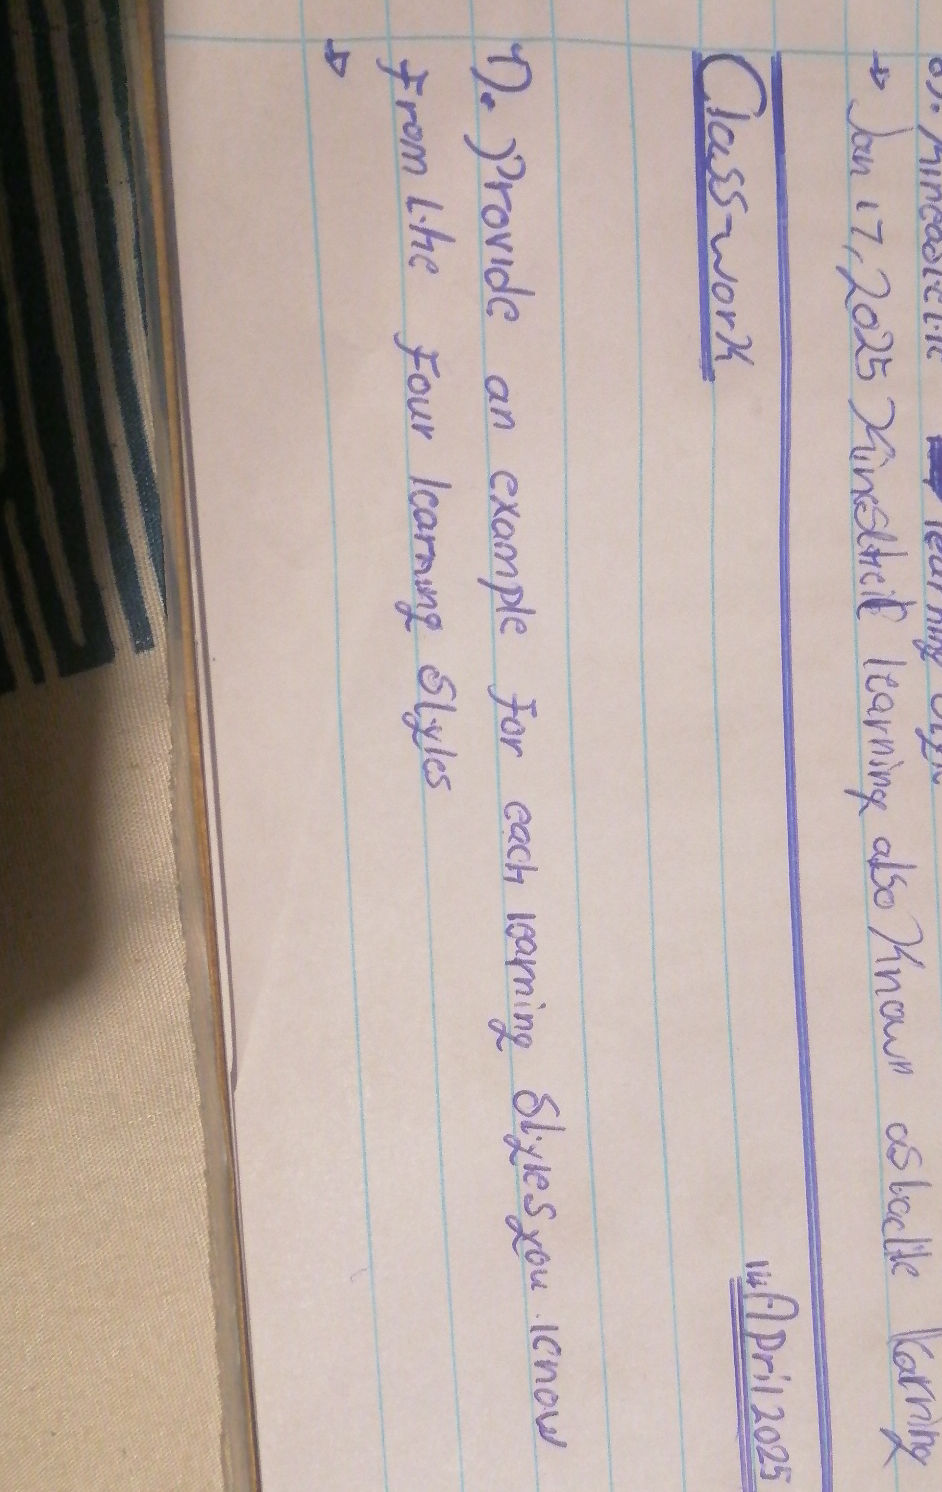 learning
→ Jan 17, 2025 Kinesthetic learning also Known as tactile learning
Class-work
14 April 2025
1). Provide an example for each learning Styles you know
From the Four learning Styles
→